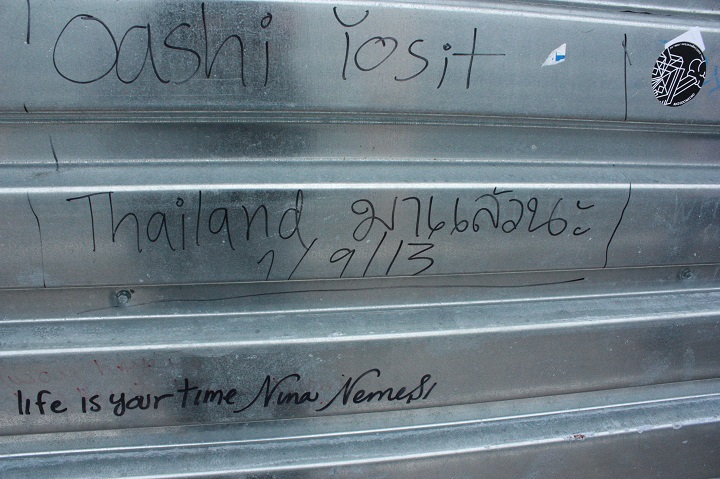 Oashi Yosit
Thailand มาแล้วนะ
1/9/13
life is your time Nina